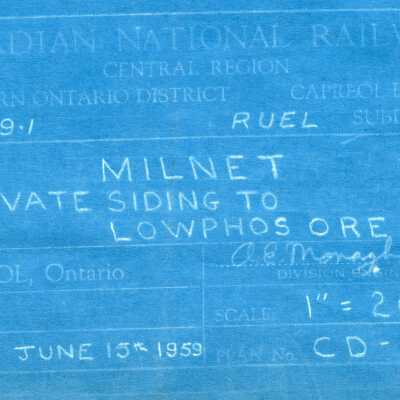 RDIAN NATIONAL RAILW
CENTRAL REGION
ERN ONTARIO DISTRICT CAPREOL
9.1 RUEL SUBDI
MILNET
VATE SIDING TO
LOWPHOS ORE
DIVISION
OL, Ontario
SCALE: 1" = 2
JUNE 15th 1959 PLAN No. CD-